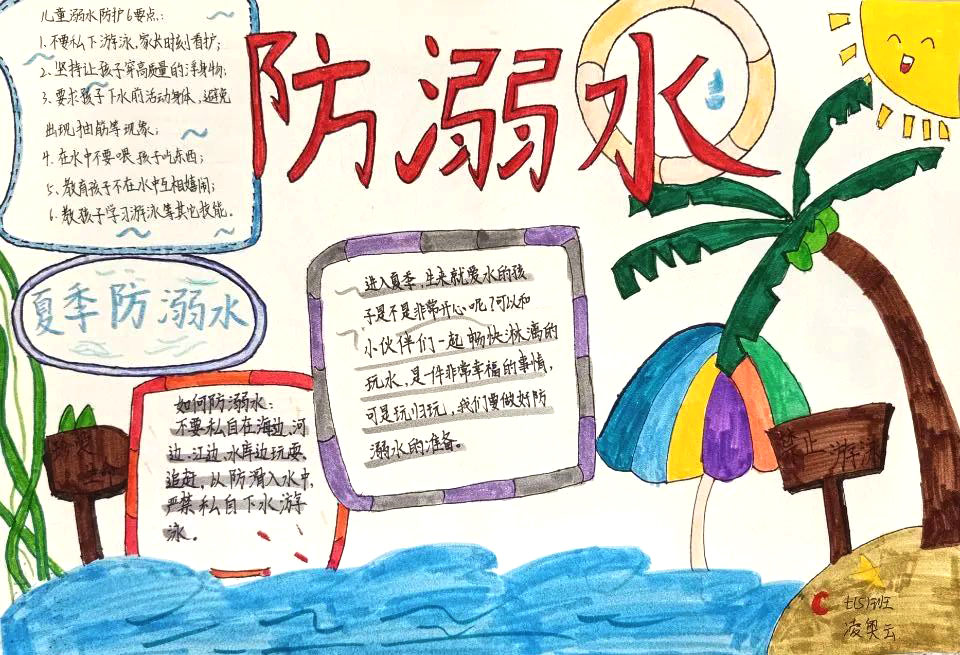 儿童溺水防护6要点:
1.不要私下游泳,家长时刻看护;
2.坚持让孩子穿高质量的浮身物;
3.要求孩子下水前活动身体,避免
出现抽筋等现象;
4.在水中不要喂孩子吃东西;
5.教育孩子不在水中互相嬉闹;
6.教孩子学习游泳等其它技能。
防溺水
夏季防溺水
进入夏季,生来就爱水的孩
子是不是非常开心呢?可以和
小伙伴们一起畅快淋漓的
玩水,是一件非常幸福的事情,
可是玩归玩,我们要做好防
溺水的准备。
如何防溺水:
不要私自在海边、河
边、江边、水库边玩耍、
追赶,以防滑入水中,
严禁私自下水游
泳。
珍爱
生命
禁止游泳
七(5)班
凌奥云